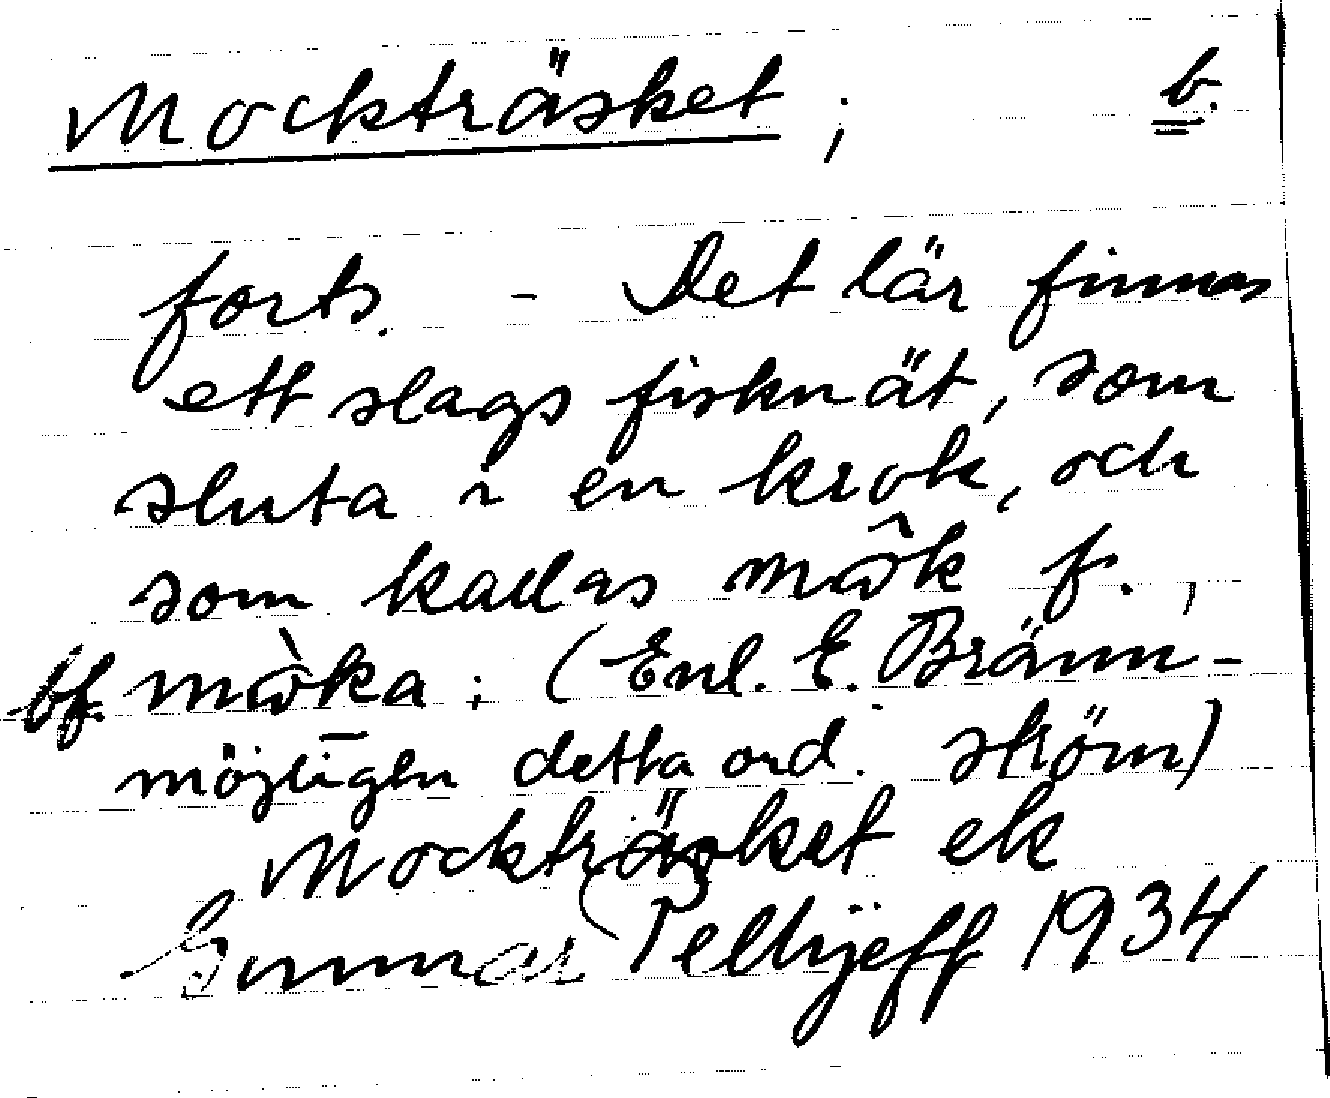 Mockträsket ; b.
forts. - Det lär finnas
ett slags fisknät, som
sluta i en krok, och
som kallas mok f. ,
bf. moka ; (Enl. E. Bränn-
möjligen detta ord. ström)
Mockträsket ek
Gunnar Pellijeff 1934